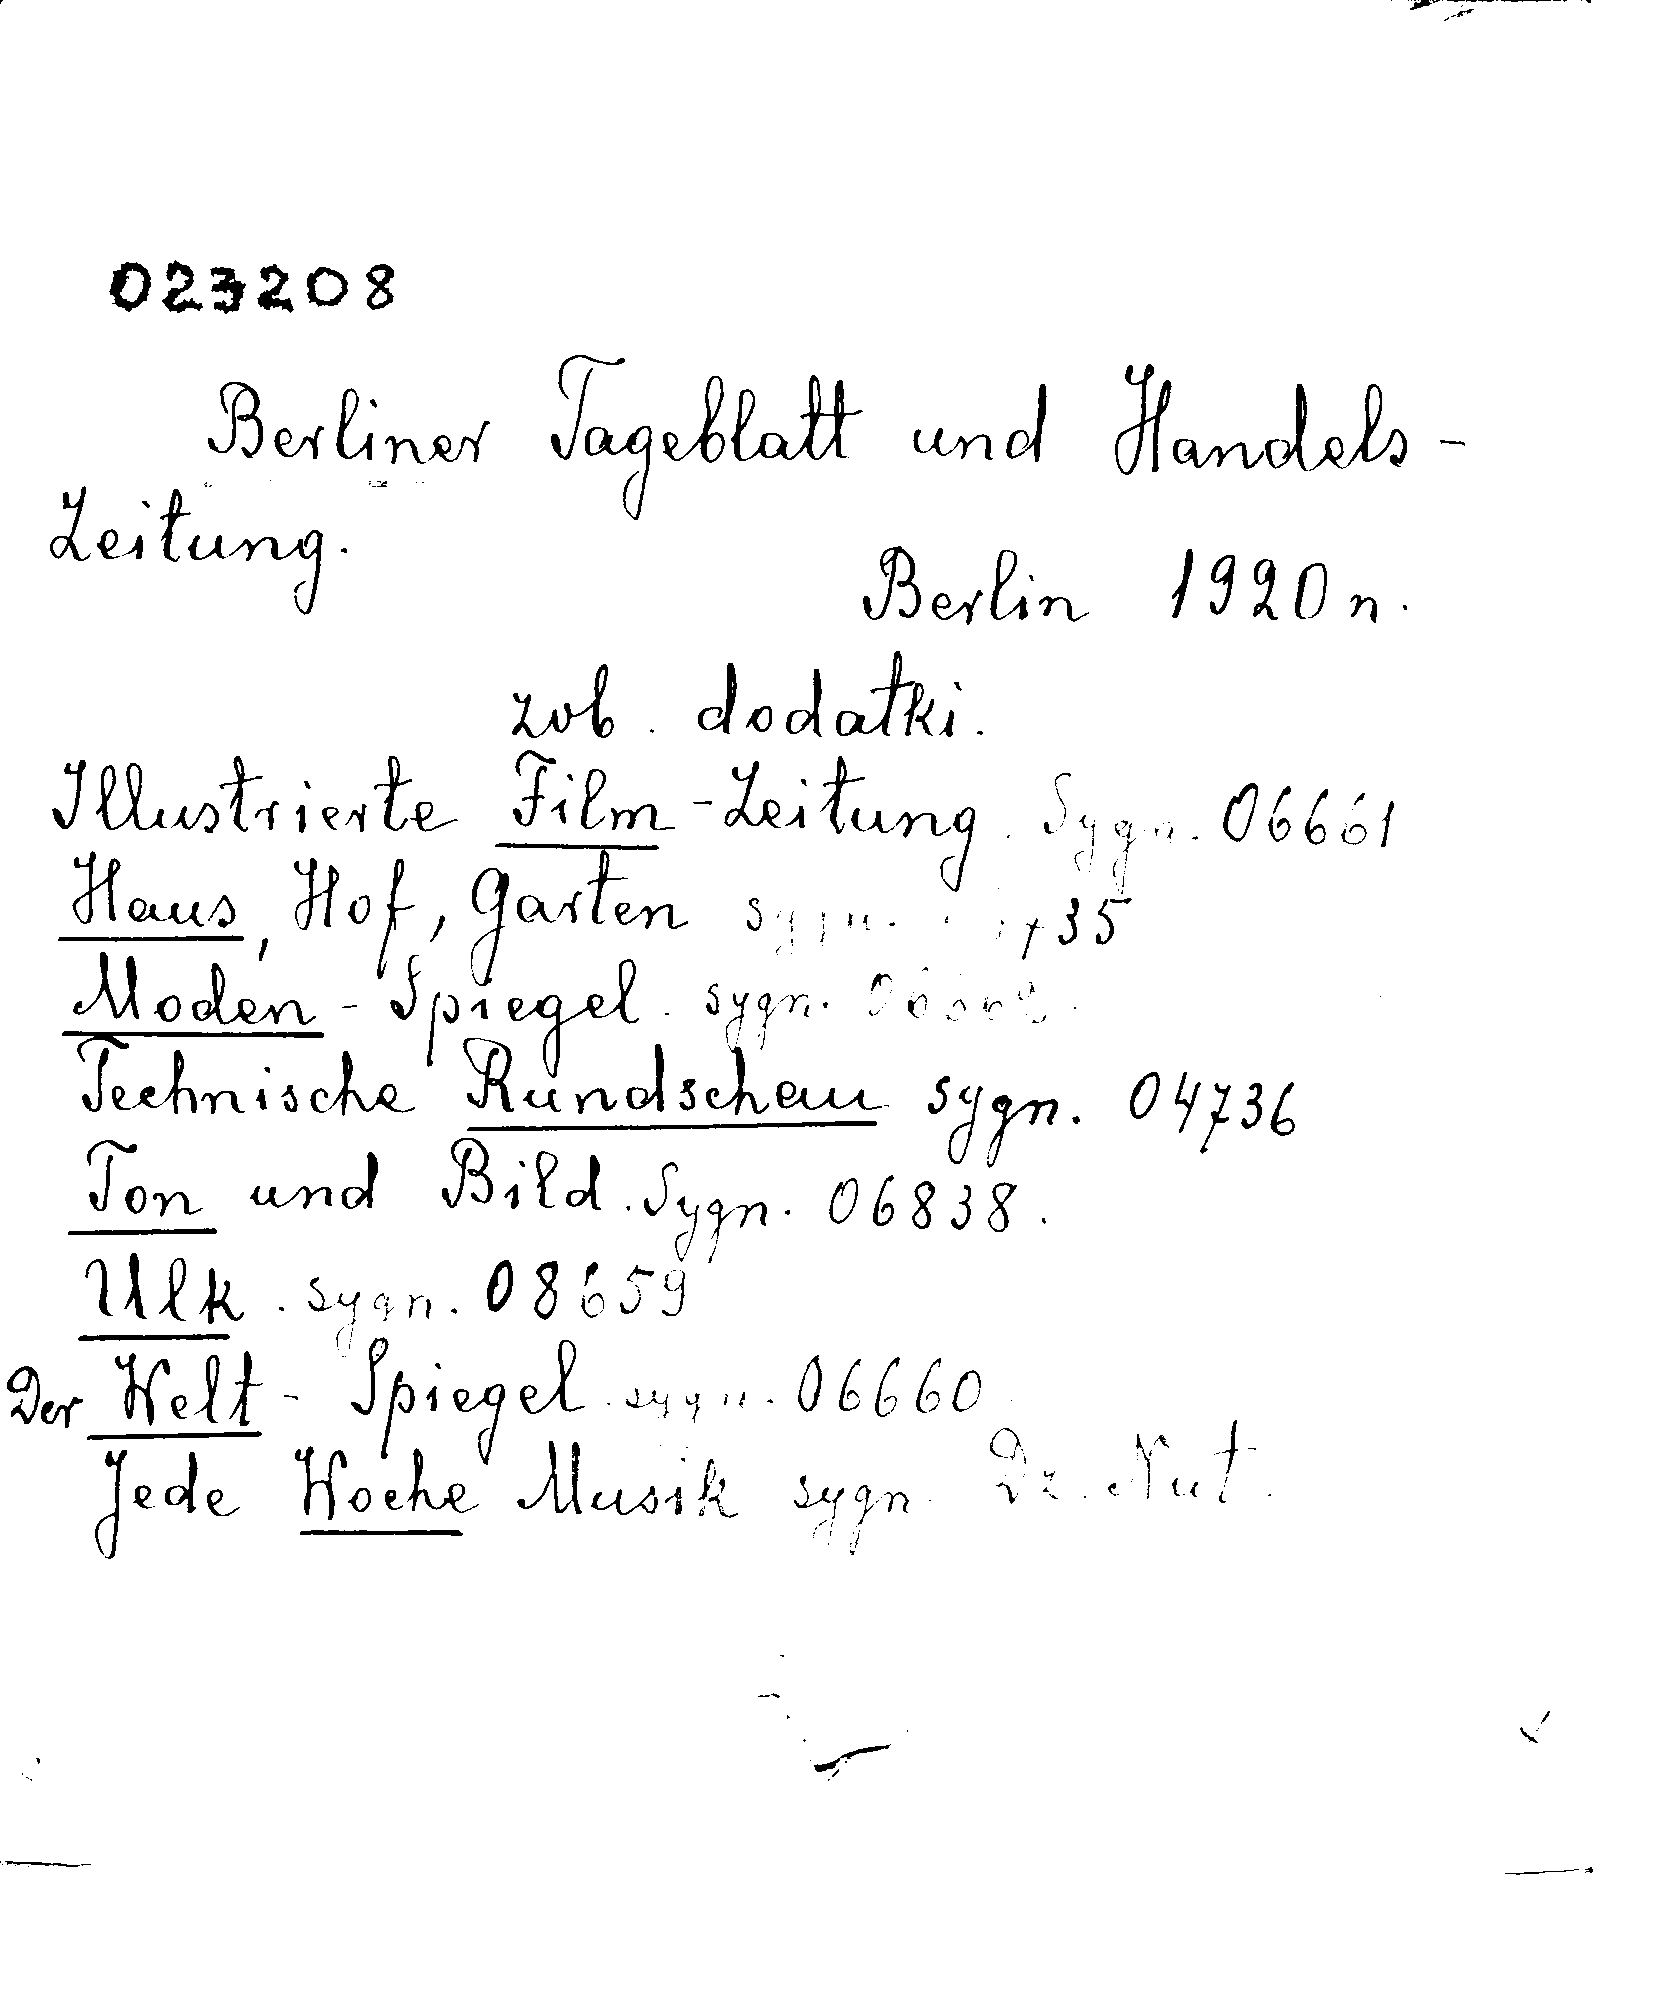 023208
Berliner Tageblatt und Handels-
Zeitung.
Berlin 1920 n.
zob. dodatki.
Illustrierte Film-Zeitung. Sygn. 06661
Haus, Hof, Garten sygn.
Moden-Spiegel. sygn.
Technische Rundschau sygn. 04736
Ton und Bild. Sygn. 06838.
Ulk. sygn. 08659
Der Welt-Spiegel. sygn. 06660
Jede Woche Musik sygn. Dz. Nut.